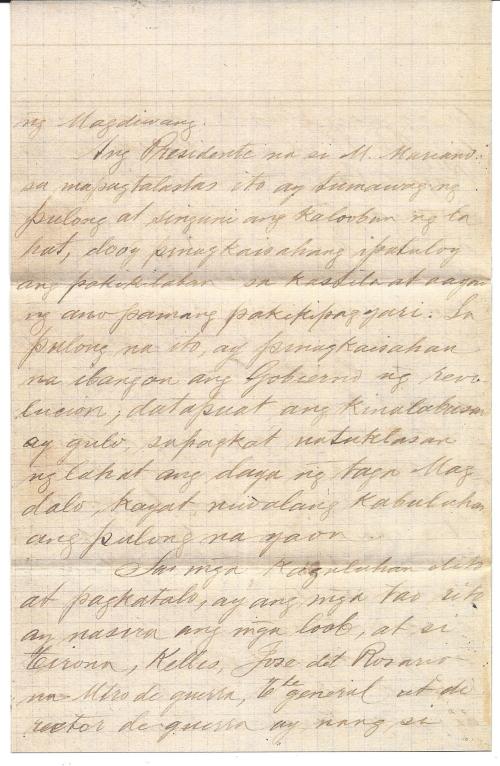 ng Magdiwang.
Ang Presidente na si M. Mariano
sa mapagtalastas ito ay tumawag ng
pulong at singuni ang kalooban ng la
hat, dooy pinagkaisahang ipatuloy
ang pakikilaban sa kastila at
ng ano pamang pakikipagyari. Sa
pulong na ito, ay pinagkaisahan
na ibangon ang Gobierno ng revo
lucion, datapuat ang kinalabasan
ay gulo, sapagkat natuklasan
ng lahat ang daya ng taga Mag
dalo, kayat niwalang kabuluhan
ang pulong na yaon.
Sa mga kaguluhan
at pagkatalo, ay ang mga tao rito
ay nasira ang mga loob, at si
Tirona, Jose del Rosario
na Mtro de guerra, Tte general at di
rector de guerra ay nang si